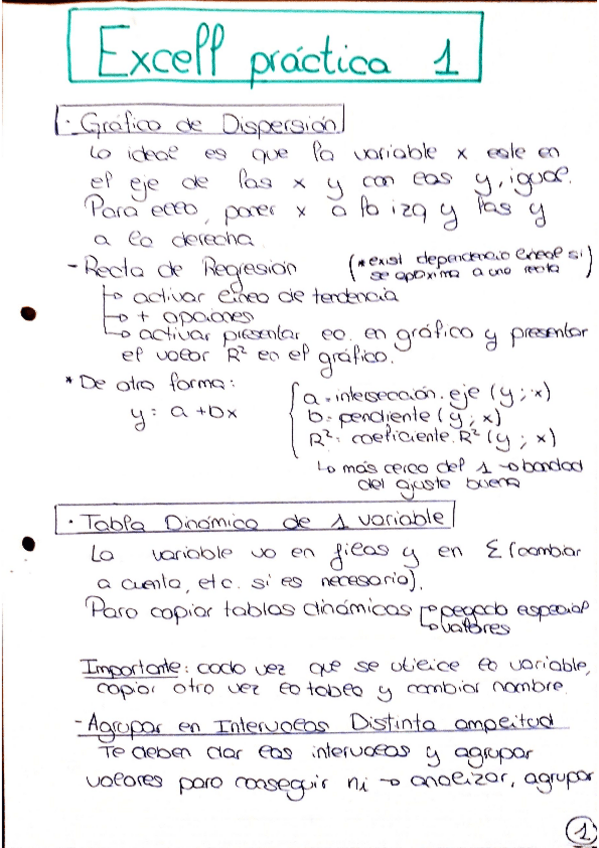 Excell práctica 1
· Gráfico de Dispersión
Lo ideal es que la variable x este en
el eje de las x y con las y, igual.
Para ello, poner x a la izq y las y
a la derecha.
- Recta de Regresión (* exist dependencia lineal si
se aproxima a una recta)
→ activar línea de tendencia
→ + opciones
→ activar presentar ec. en gráfico y presentar
el valor R² en el gráfico.
* De otra forma:
y = a + bx
a = intersección.eje (y ; x)
b = pendiente (y ; x)
R² = coeficiente.R² (y ; x)
↳ más cerca del 1 → bondad
del ajuste buena
· Tabla Dinámica de 1 variable
La variable va en filas y en Σ (cambiar
a cuenta, etc. si es necesario).
Para copiar tablas dinámicas → pegado especial
→ valores
Importante: cada vez que se utilice la variable,
copiar otra vez la tabla y cambiar nombre.
- Agrupar en Intervalos Distinta amplitud
Te deben dar los intervalos y agrupar
valores para conseguir ni → analizar, agrupar
1